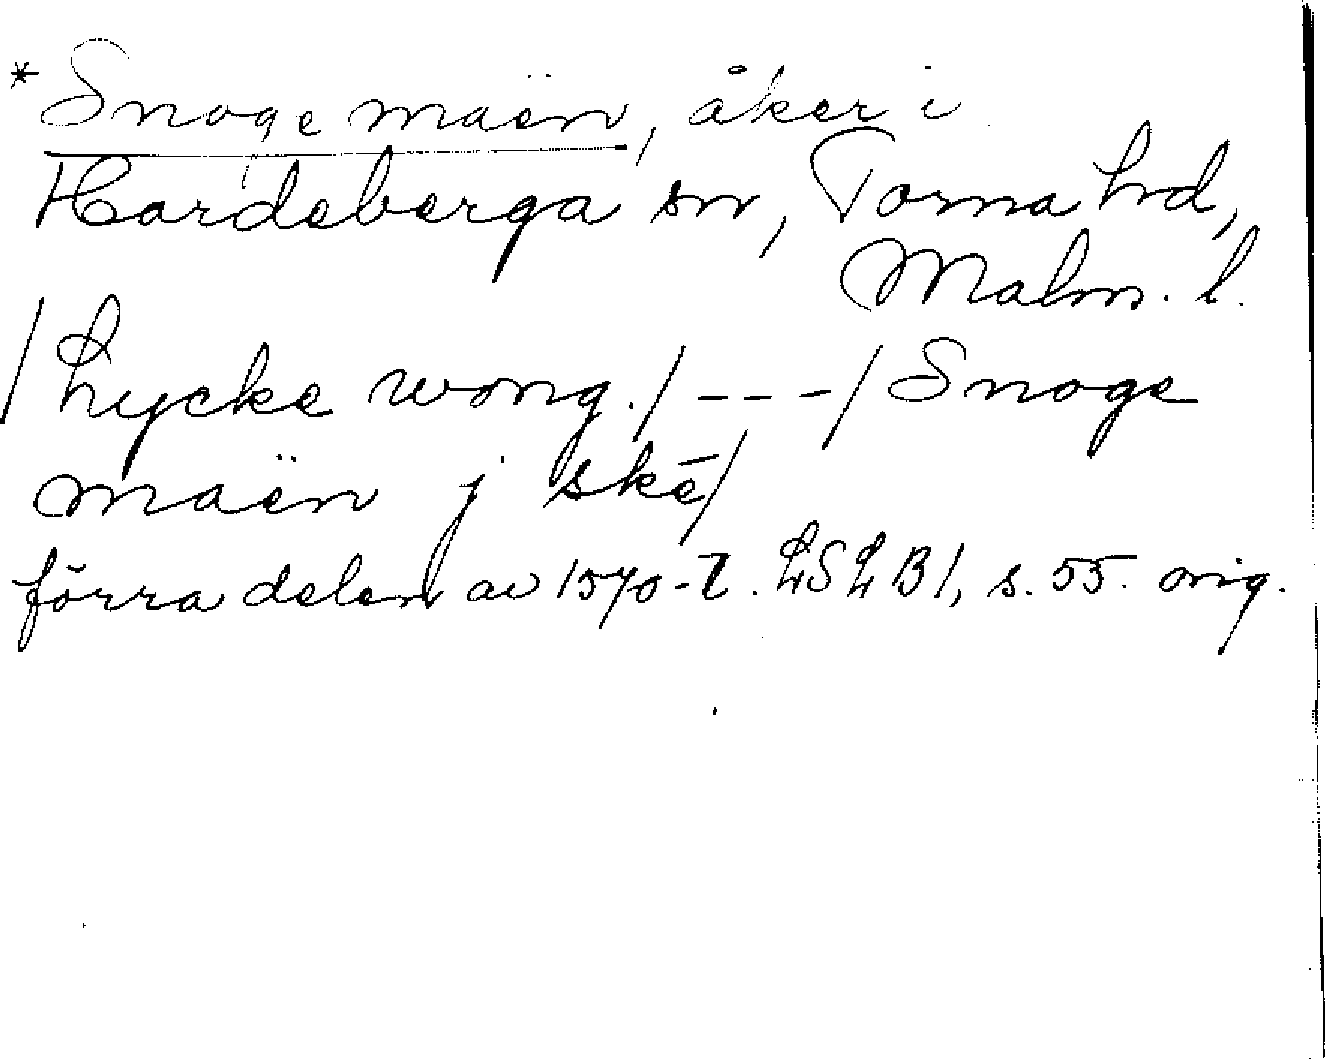 *Snoge maën, åker i
Hardeberga sn, Torna hd,
Malm. l.
/Lycke wong./---/Snoge
maën j skē/
förra delen av 1570-t. LSLB1, s. 55. orig.